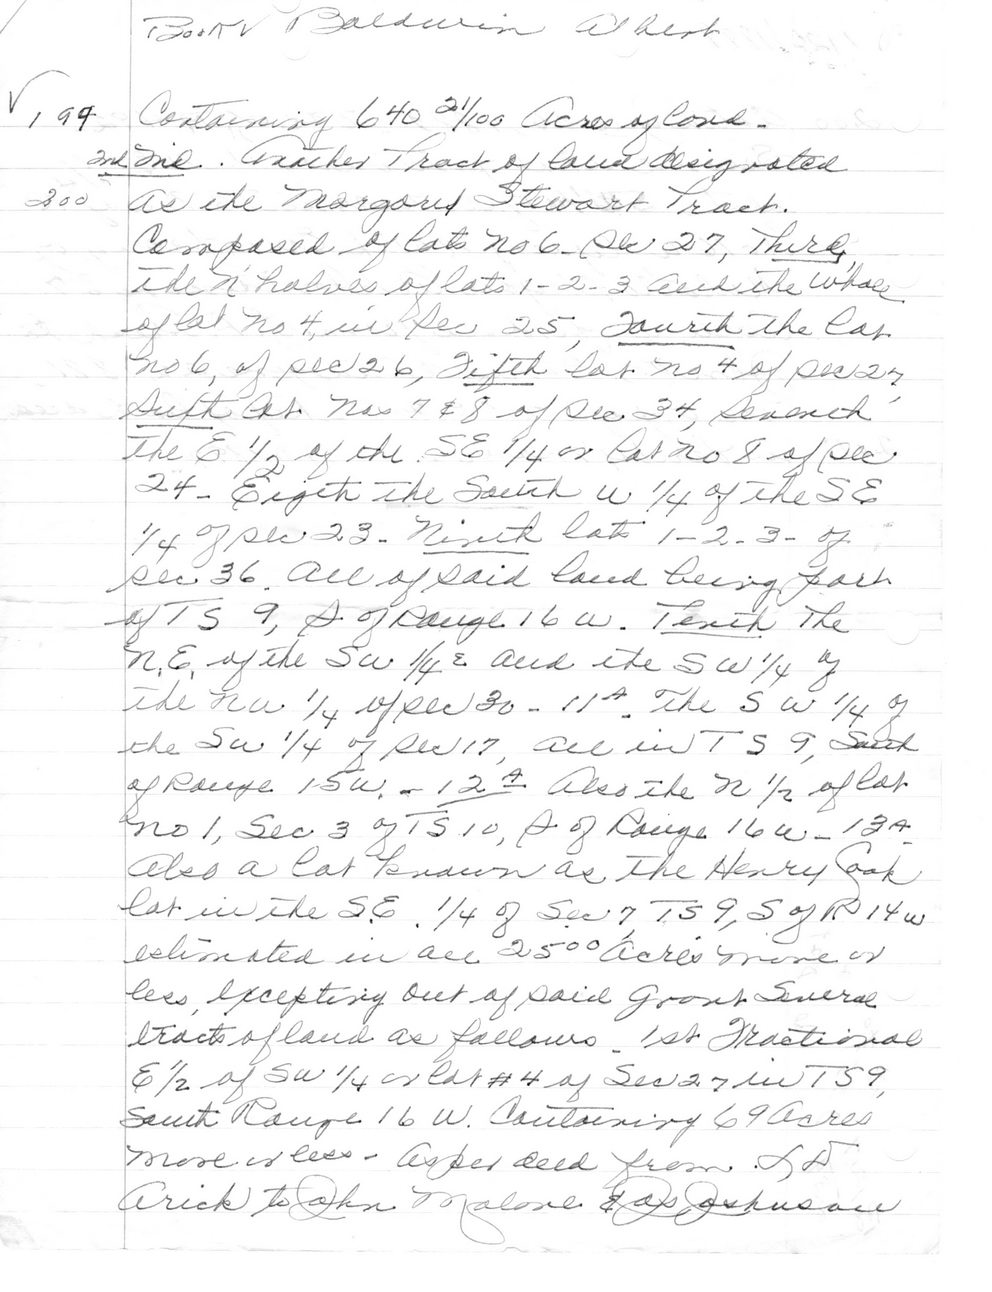 Book V Baldwin Albert
199 Containing 640 21/100 Acres of land.
2nd 2nd. Another Tract of land designated
200 As the Margaret Stewart Tract.
Composed of lots No 6 - Sec 27, Third,
the N halves of lots 1-2-3 and the whole
of lot No 4, in Sec 25, Fourth the lot
No 6, of sec 26, Fifth lot No 4 of sec 27,
Sixth lot Nos 7 & 8 of Sec 34, Seventh
the E 1/2 of the SE 1/4 or lot No 8 of Sec
24 - Eigth the South W 1/4 of the SE
1/4 of sec 23 - Nineth lots 1-2-3- of
Sec 36. All of said land being part
of TS 9, S of Range 16 W. Tenth The
N.E. of the SW 1/4 and the SW 1/4 of
the NW 1/4 of sec 30 - 11th. The SW 1/4 of
the SW 1/4 of Sec 17, all in TS 9, South
of Range 15W. - 12th Also the N 1/2 of lot
No 1, Sec 3 of TS 10, S of Range 16 W - 13th
Also a lot known as the Henry Cook
lot in the S.E. 1/4 of Sec 7, TS 9, S of R 14 W
estimated in all 2500 Acres more or
less, excepting out of said grant Several
tracts of land as follows - 1st Fractional
E 1/2 of SW 1/4 or lot #4 of Sec 27 in TS 9,
South Range 16 W. Containing 69 Acres
more or less - As per deed from
Arick to John Malone & Johnson